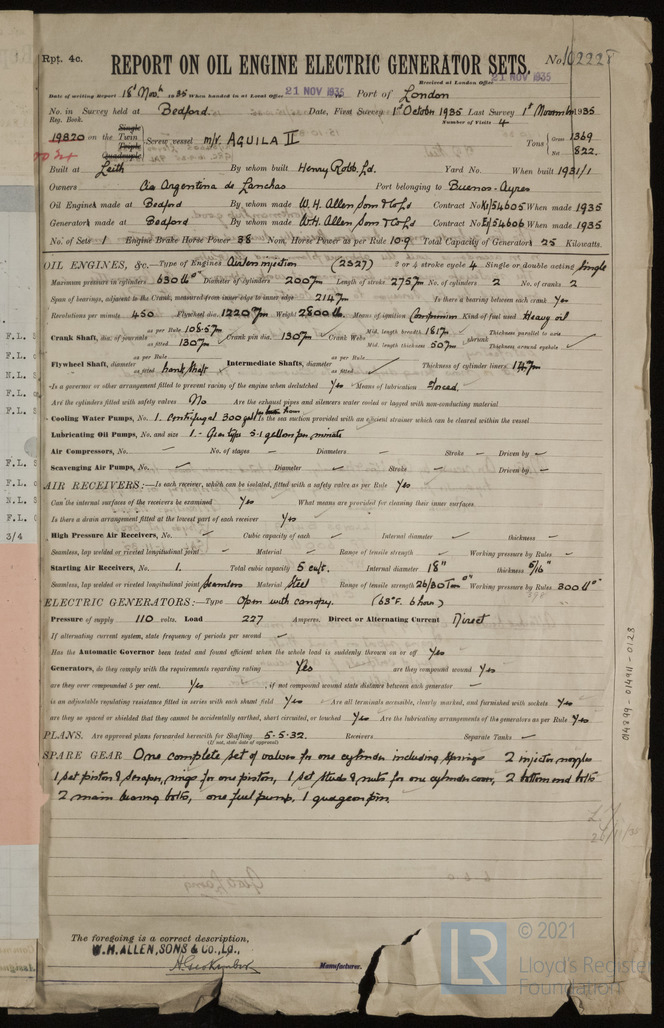 Rpt. 4c.
REPORT ON OIL ENGINE ELECTRIC GENERATOR SETS.
No. 102228
Received at London Office 21 NOV 1935
Date of writing Report 18th Novr 1935 When handed in at Local Office 21 NOV 1935 Port of London
No. in Survey held at Bedford. Date, First Survey 1st October 1935 Last Survey 1st November 1935
Reg. Book. Number of Visits 4
19820 on the Single Twin Triple Quadruple Screw vessel m/v. AGUILA II Tons Gross 1369 Net 822.
Built at Leith By whom built Henry Robb, Ld. Yard No. When built 1931/1
Owners Cia Argentina de Lanchas Port belonging to Buenos-Ayres
Oil Engines made at Bedford By whom made W. H. Allen Sons & Co Ld Contract No. K1/54605 When made 1935
Generators made at Bedford By whom made W.H. Allen Sons & Co Ld Contract No. E/54606 When made 1935
No. of Sets 1 Engine Brake Horse Power 38 Nom. Horse Power as per Rule 10.9 Total Capacity of Generators 25 Kilowatts.
OIL ENGINES, &c.—Type of Engines Airless injection (2S27) 2 or 4 stroke cycle 4 Single or double acting Single
Maximum pressure in cylinders 630 lb□" Diameter of cylinders 200 m/m Length of stroke 275 m/m No. of cylinders 2 No. of cranks 2
Span of bearings, adjacent to the Crank, measured from inner edge to inner edge 214 m/m Is there a bearing between each crank Yes
Revolutions per minute 450 Flywheel dia. 1220 m/m Weight 2800 lb. Means of ignition Compression Kind of fuel used Heavy oil
Crank Shaft, dia. of journals as per Rule 108.5 m/m as fitted 130 m/m Crank pin dia. 130 m/m Crank Webs Mid. length breadth 181 m/m Mid. length thickness 50 m/m Thickness parallel to axis Thickness around eyehole
Flywheel Shaft, diameter as per Rule as fitted Crank shaft Intermediate Shafts, diameter as per Rule as fitted Thickness of cylinder liners 14 m/m
Is a governor or other arrangement fitted to prevent racing of the engine when declutched Yes Means of lubrication Forced.
Are the cylinders fitted with safety valves No Are the exhaust pipes and silencers water cooled or lagged with non-conducting material
Cooling Water Pumps, No. 1. Centrifugal 300 gall per hour Is the sea suction provided with an efficient strainer which can be cleared within the vessel
Lubricating Oil Pumps, No. and size 1 - Gear type 5.1 gallons per minute
Air Compressors, No. No. of stages Diameters Stroke Driven by
Scavenging Air Pumps, No. Diameter Stroke Driven by
AIR RECEIVERS:—Is each receiver, which can be isolated, fitted with a safety valve as per Rule Yes
Can the internal surfaces of the receivers be examined Yes What means are provided for cleaning their inner surfaces
Is there a drain arrangement fitted at the lowest part of each receiver Yes
High Pressure Air Receivers, No. Cubic capacity of each Internal diameter thickness
Seamless, lap welded or riveted longitudinal joint Material Range of tensile strength Working pressure by Rules
Starting Air Receivers, No. 1. Total cubic capacity 5 cu/f. Internal diameter 18" thickness 5/16"
Seamless, lap welded or riveted longitudinal joint Seamless Material Steel Range of tensile strength 26/30 Tons □" Working pressure by Rules 300 lb□"
ELECTRIC GENERATORS:—Type Open with canopy. (63°F. 6 hours)
Pressure of supply 110 volts. Load 227 Amperes. Direct or Alternating Current Direct
If alternating current system, state frequency of periods per second
Has the Automatic Governor been tested and found efficient when the whole load is suddenly thrown on or off Yes
Generators, do they comply with the requirements regarding rating Yes are they compound wound Yes
are they over compounded 5 per cent. Yes , if not compound wound state distance between each generator
is an adjustable regulating resistance fitted in series with each shunt field Yes Are all terminals accessible, clearly marked, and furnished with sockets Yes
are they so spaced or shielded that they cannot be accidentally earthed, short circuited, or touched Yes Are the lubricating arrangements of the generators as per Rule Yes
PLANS. Are approved plans forwarded herewith for Shafting 5.5.32. Receivers Separate Tanks
(If not, state date of approval)
SPARE GEAR One complete set of valves for one cylinder including springs 2 injector nozzles
1 set piston & scraper rings for one piston, 1 set studs & nuts for one cylinder cover, 2 bottom end bolts
2 main bearing bolts, one fuel pump, 1 gudgeon pin.
The foregoing is a correct description,
W.H. ALLEN, SONS & Co., Ld.,
Manufacturer.
014899-014911-0128
F.L.
F.L.
N.L.
F.L.
F.L.
F.L.
N.L.
F.L.
3/4
LR
© 2021
Lloyd's Register
Foundation